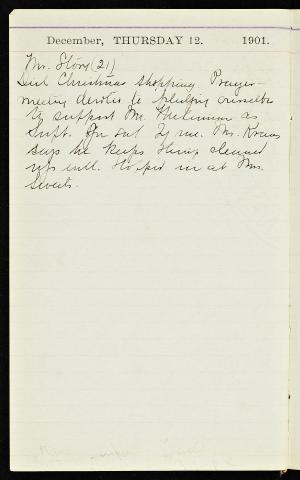 December, THURSDAY 12. 1901.
Mr. Story (21)
Did Christmas shopping. Prayer-
meeting devoted to pledging ourselves
to support Mr. as
Supt. for Mr. Kraus
says he keeps things cleaned
up well. Stopped in at Mrs.